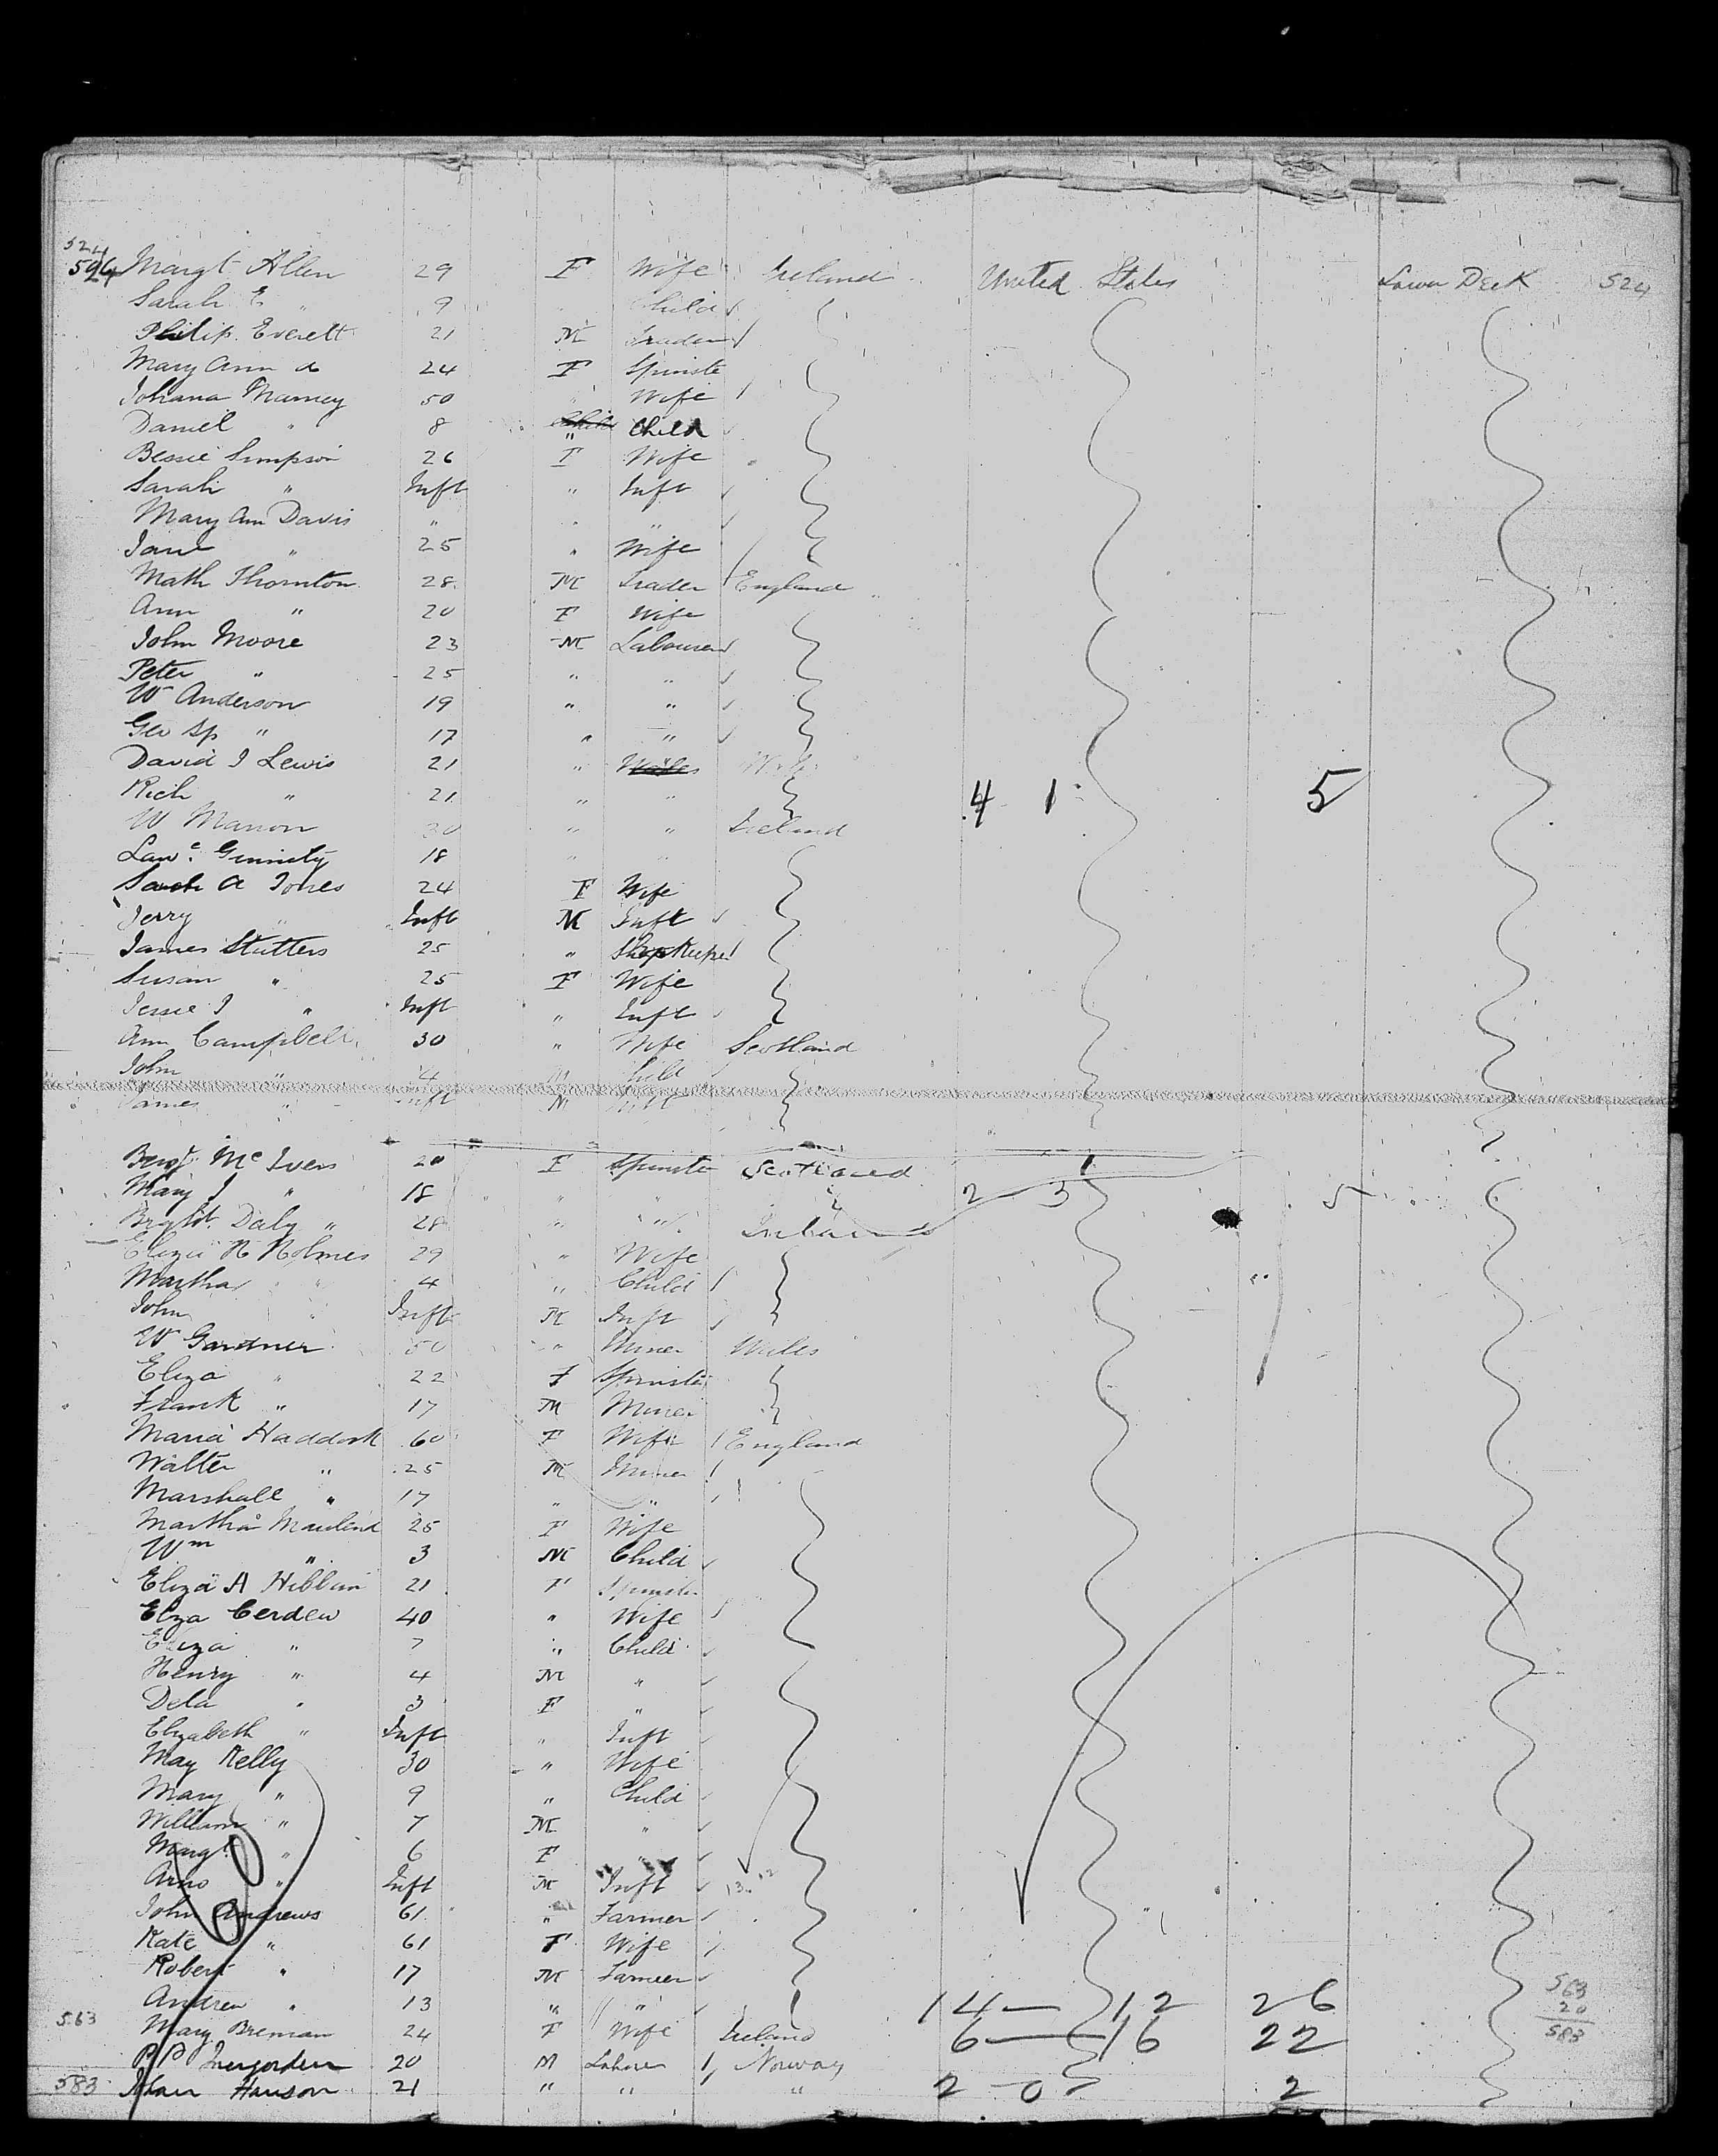 524
594 Margt Allen 29 F Wife Ireland United States Lower Deck 524
Sarah E " 9 " Child
Philip Everett 21 M Trader
Mary Ann do 24 F Spinste
Johana Mamey 50 " Wife
Daniel " 8 " Child
Bessie Simpson 26 F Wife
Sarah " Inft " Inft
Mary Ann Davis " " "
Jane " 25 " Wife
Math Thornton 28 M Trader England
Ann " 20 F Wife
John Moore 23 M Labourer
Peter " 25 " "
W Anderson 19 " "
Geo Sp " 17 " "
David J Lewis 21 " Wales
Rich " 21 " " 4 1 5
W Marion 30 " " Ireland
Lawc. Ginnity 18 " "
Sarah A Jones 24 F Wife
Jerry " Inft M Inft
James Stutters 25 " Shopkeeper
Susan " 25 F Wife
Jessie J " Inft " Inft
Ann Campbell 30 " Wife Scotland
John " 4 M Child
James " Inft M Inft
Benj. McIvers 20 F Spinste Scotland 1
Mary J " 18 " " 2 - 3 5
Brgdt. Daly " 28 " " Ireland
Eliza H Holmes 29 " Wife
Martha " 4 " Child
John " Inft M Inft
W Gardner 50 " Miner Wales
Eliza " 22 F Spinste
Frank " 17 M Miner
Maria Haddock 60 F Wife England
Walter " 25 M Miner
Marshall " 17 " "
Martha 25 F Wife
Wm " 3 M Child
Eliza A 21 F Spinster
Elza Cerdew 40 " Wife
Eliza " 7 " Child
Henry " 4 M "
Dela " 3 F "
Elizabeth " Inft " Inft
May Kelly 30 " Wife
Mary " 9 " Child
William " 7 M "
Margt " 6 F "
Arno " Inft M Inft 13 12
John Andrews 61 " Farmer
Kate " 61 F Wife
Robert " 17 M Farmer
Andrew " 13 " " 14 - 12 26 563
563 Mary Brennan 24 F Wife Ireland 6 - 16 22 20
P P 20 M Laborer Norway 583
583 Johan Hanson 21 " " " 2 - 0 2